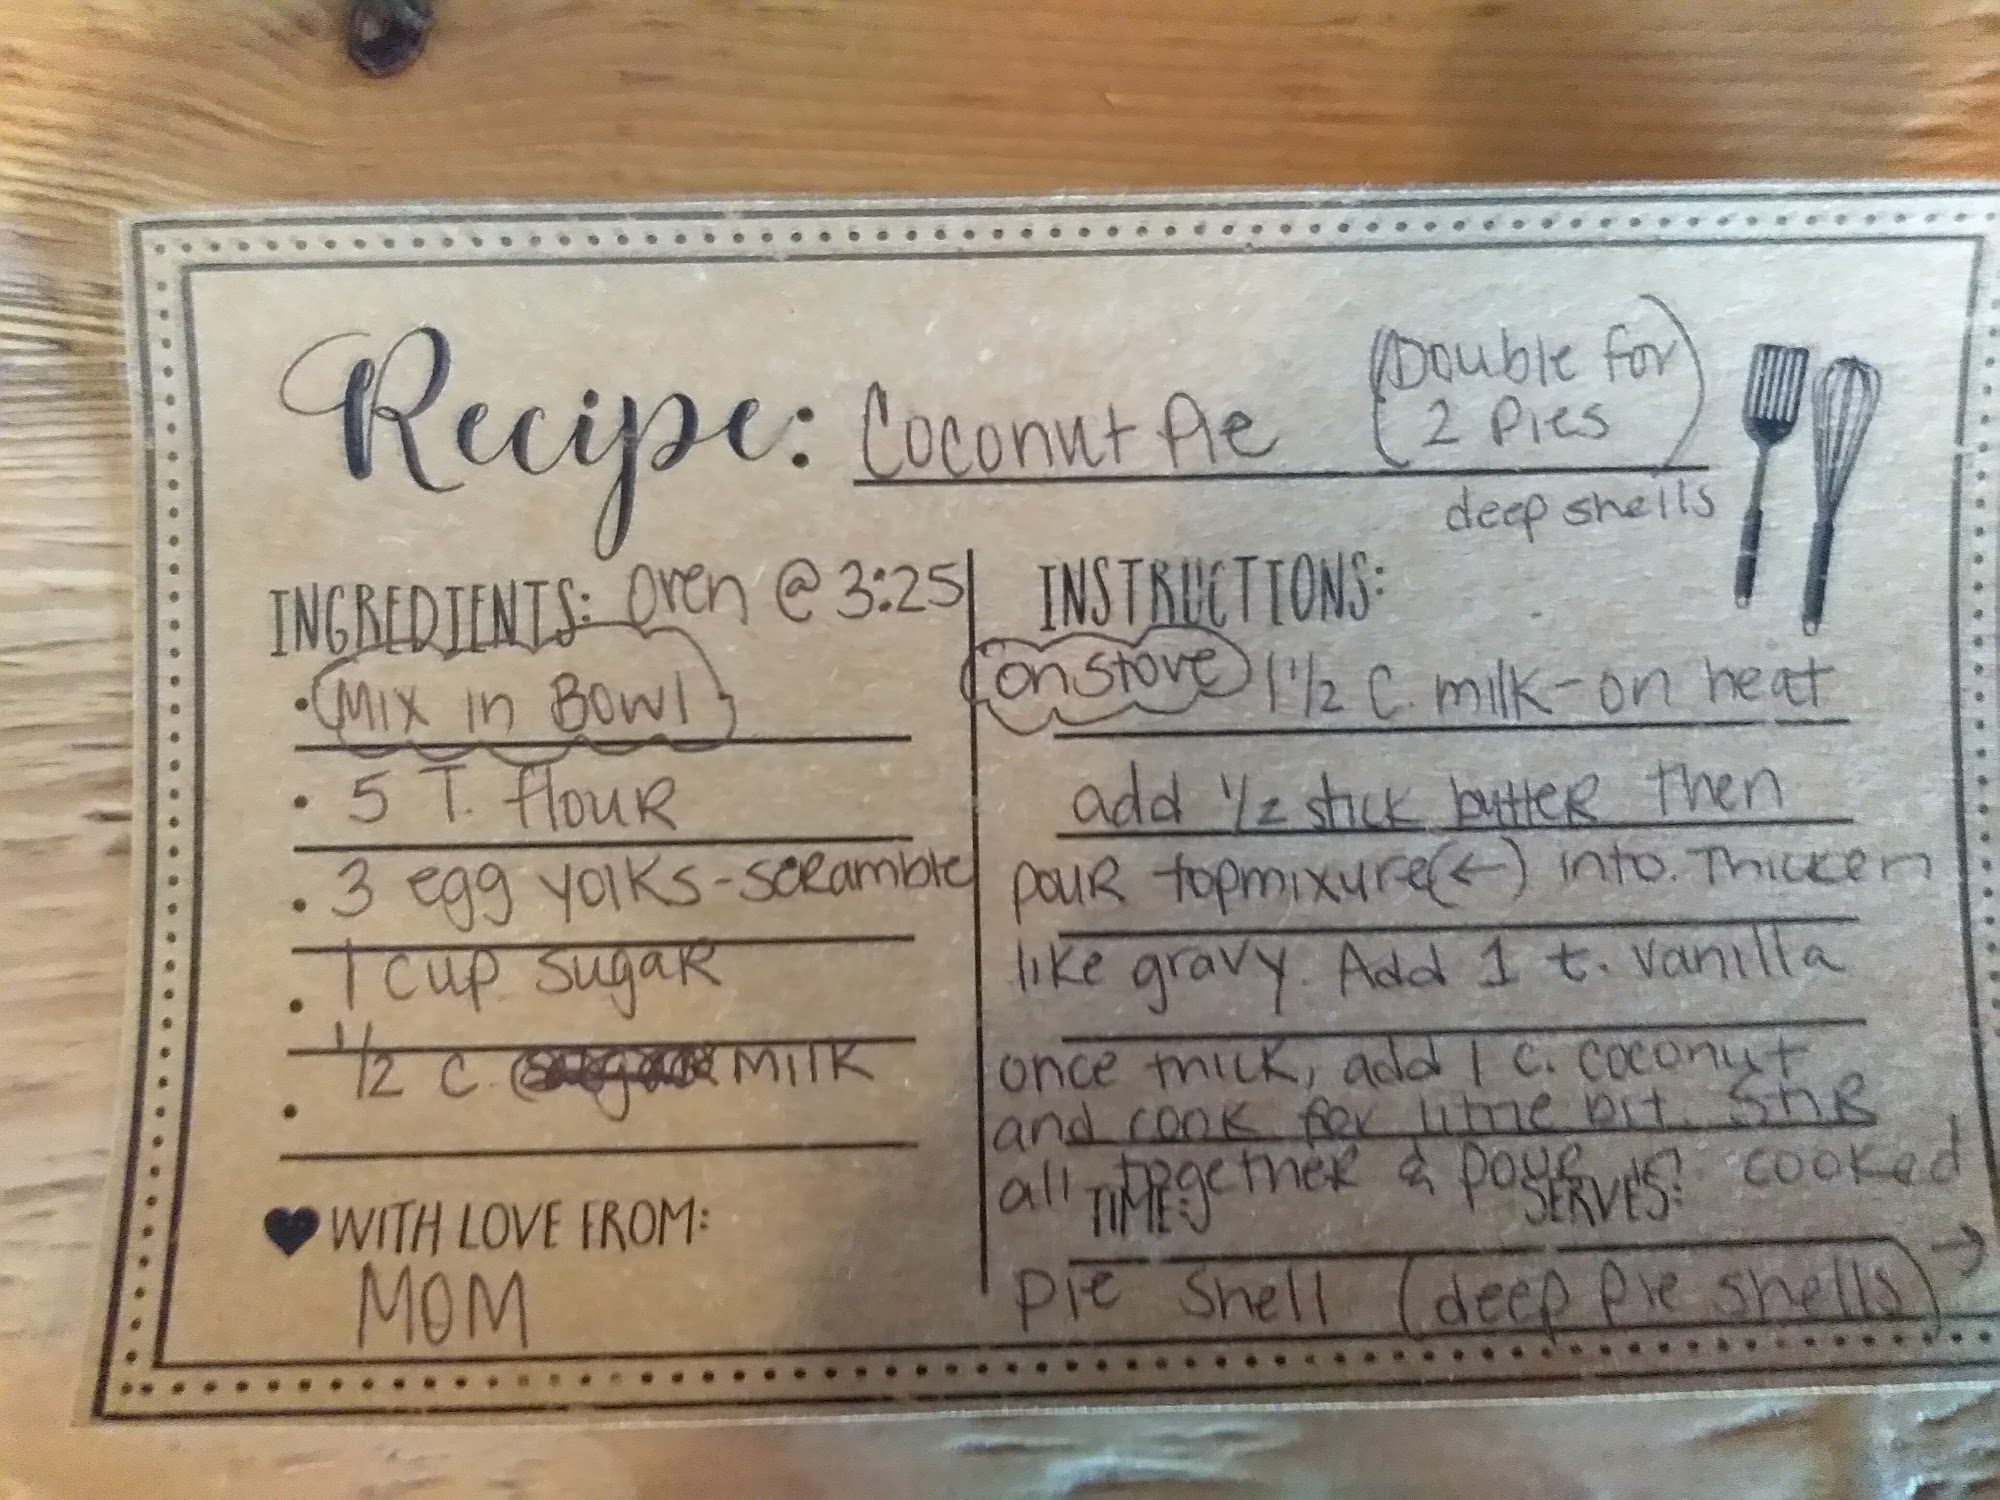 Recipe: Coconut Pie (Double for
2 Pies)
deep shells
INGREDIENTS: oven @ 3:25
• Mix in Bowl
• 5 T. flour
• 3 egg yolks - scramble
• 1 cup sugar
• 1/2 c. milk
♥ WITH LOVE FROM:
MOM
INSTRUCTIONS:
on stove 1 1/2 c. milk - on heat
add 1/2 stick butter then
pour topmixure (←) into. Thicken
like gravy. Add 1 t. vanilla
once thick, add 1 c. coconut
and cook for little bit. Stir
all together & pour cooked
TIME: SERVES:
pie shell (deep pie shells) →